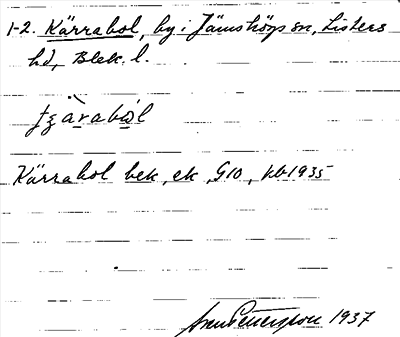 1-2. Kärrabol, by i Jämshögs sn, Listers
hd, Blek. l.
Kärrabol bek, ek, G10, kb 1935
1937